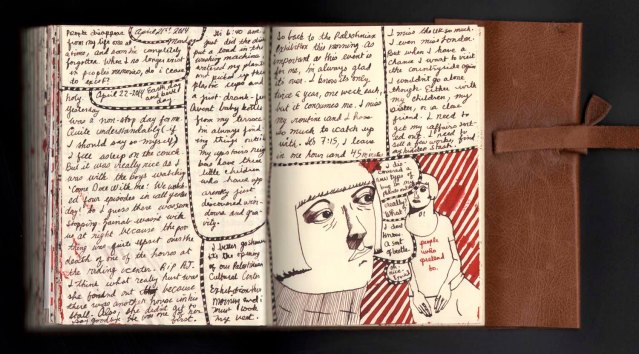 People disappear
from my life one at
a time, and some be completely
forgotten. When I no longer exist
in peoples memories, do I cease
to exist?
April 21st 2014
Monday
April 22-2014 Earth day
and Kevin's
day!
holy
Yesterday
was a non-stop day for me.
Quite understandably (if
I should say so myself)
I fell asleep on the couch
But it was really nice as I
was with the boys watching
'Come Dine With Me'. We watch-
ed four episodes in all yester-
day! So I guess there was some
stopping. Zainab wasn't with
us at night because the poor
thing was quite upset over the
death of one of the horses at
the riding center. R.I.P
I think what really hurt was
she found out because
there was another horse in his
stall. Also, she didn't get to
say goodbye. He was one of her
first.
It's 6:40 am.
just did the dishes
put a load in the
washing machine
watered my plants
and picked up the
plastic cups and
a just-drank-for
Avent baby bottle
from my terrace.
I'm always finding
things outside
my upstairs neigh-
bors have three
little children
who have app
arently just
discovered win-
dows and gra-
vity.
I better go shower
it's the opening
of our Palestinian
Cultural Center
Exhibition this
morning and I
must look
my best.
So back to the Palestinian
Exhibition this morning. As
important as this event is
for me, I'm always glad
its over. I know its only
once a year, one week such,
but it consumes me. I miss
my routine and I have
so much to catch up
with. It's 7:15, I leave
in one hour and 45 minutes
I miss the UK so much.
I even miss London.
But when I have a
chance I want to visit
the countryside again
I wouldn't go alone
though. Either with
my children, my
sister, or a close
friend. I need to
get my affairs sort
ed out. I need to
sell a few works from
my
I dis
covered a
new type of
bug in my
house
really?
What?
I don't
know
A sort
of beetle
people
who
pretend
to.